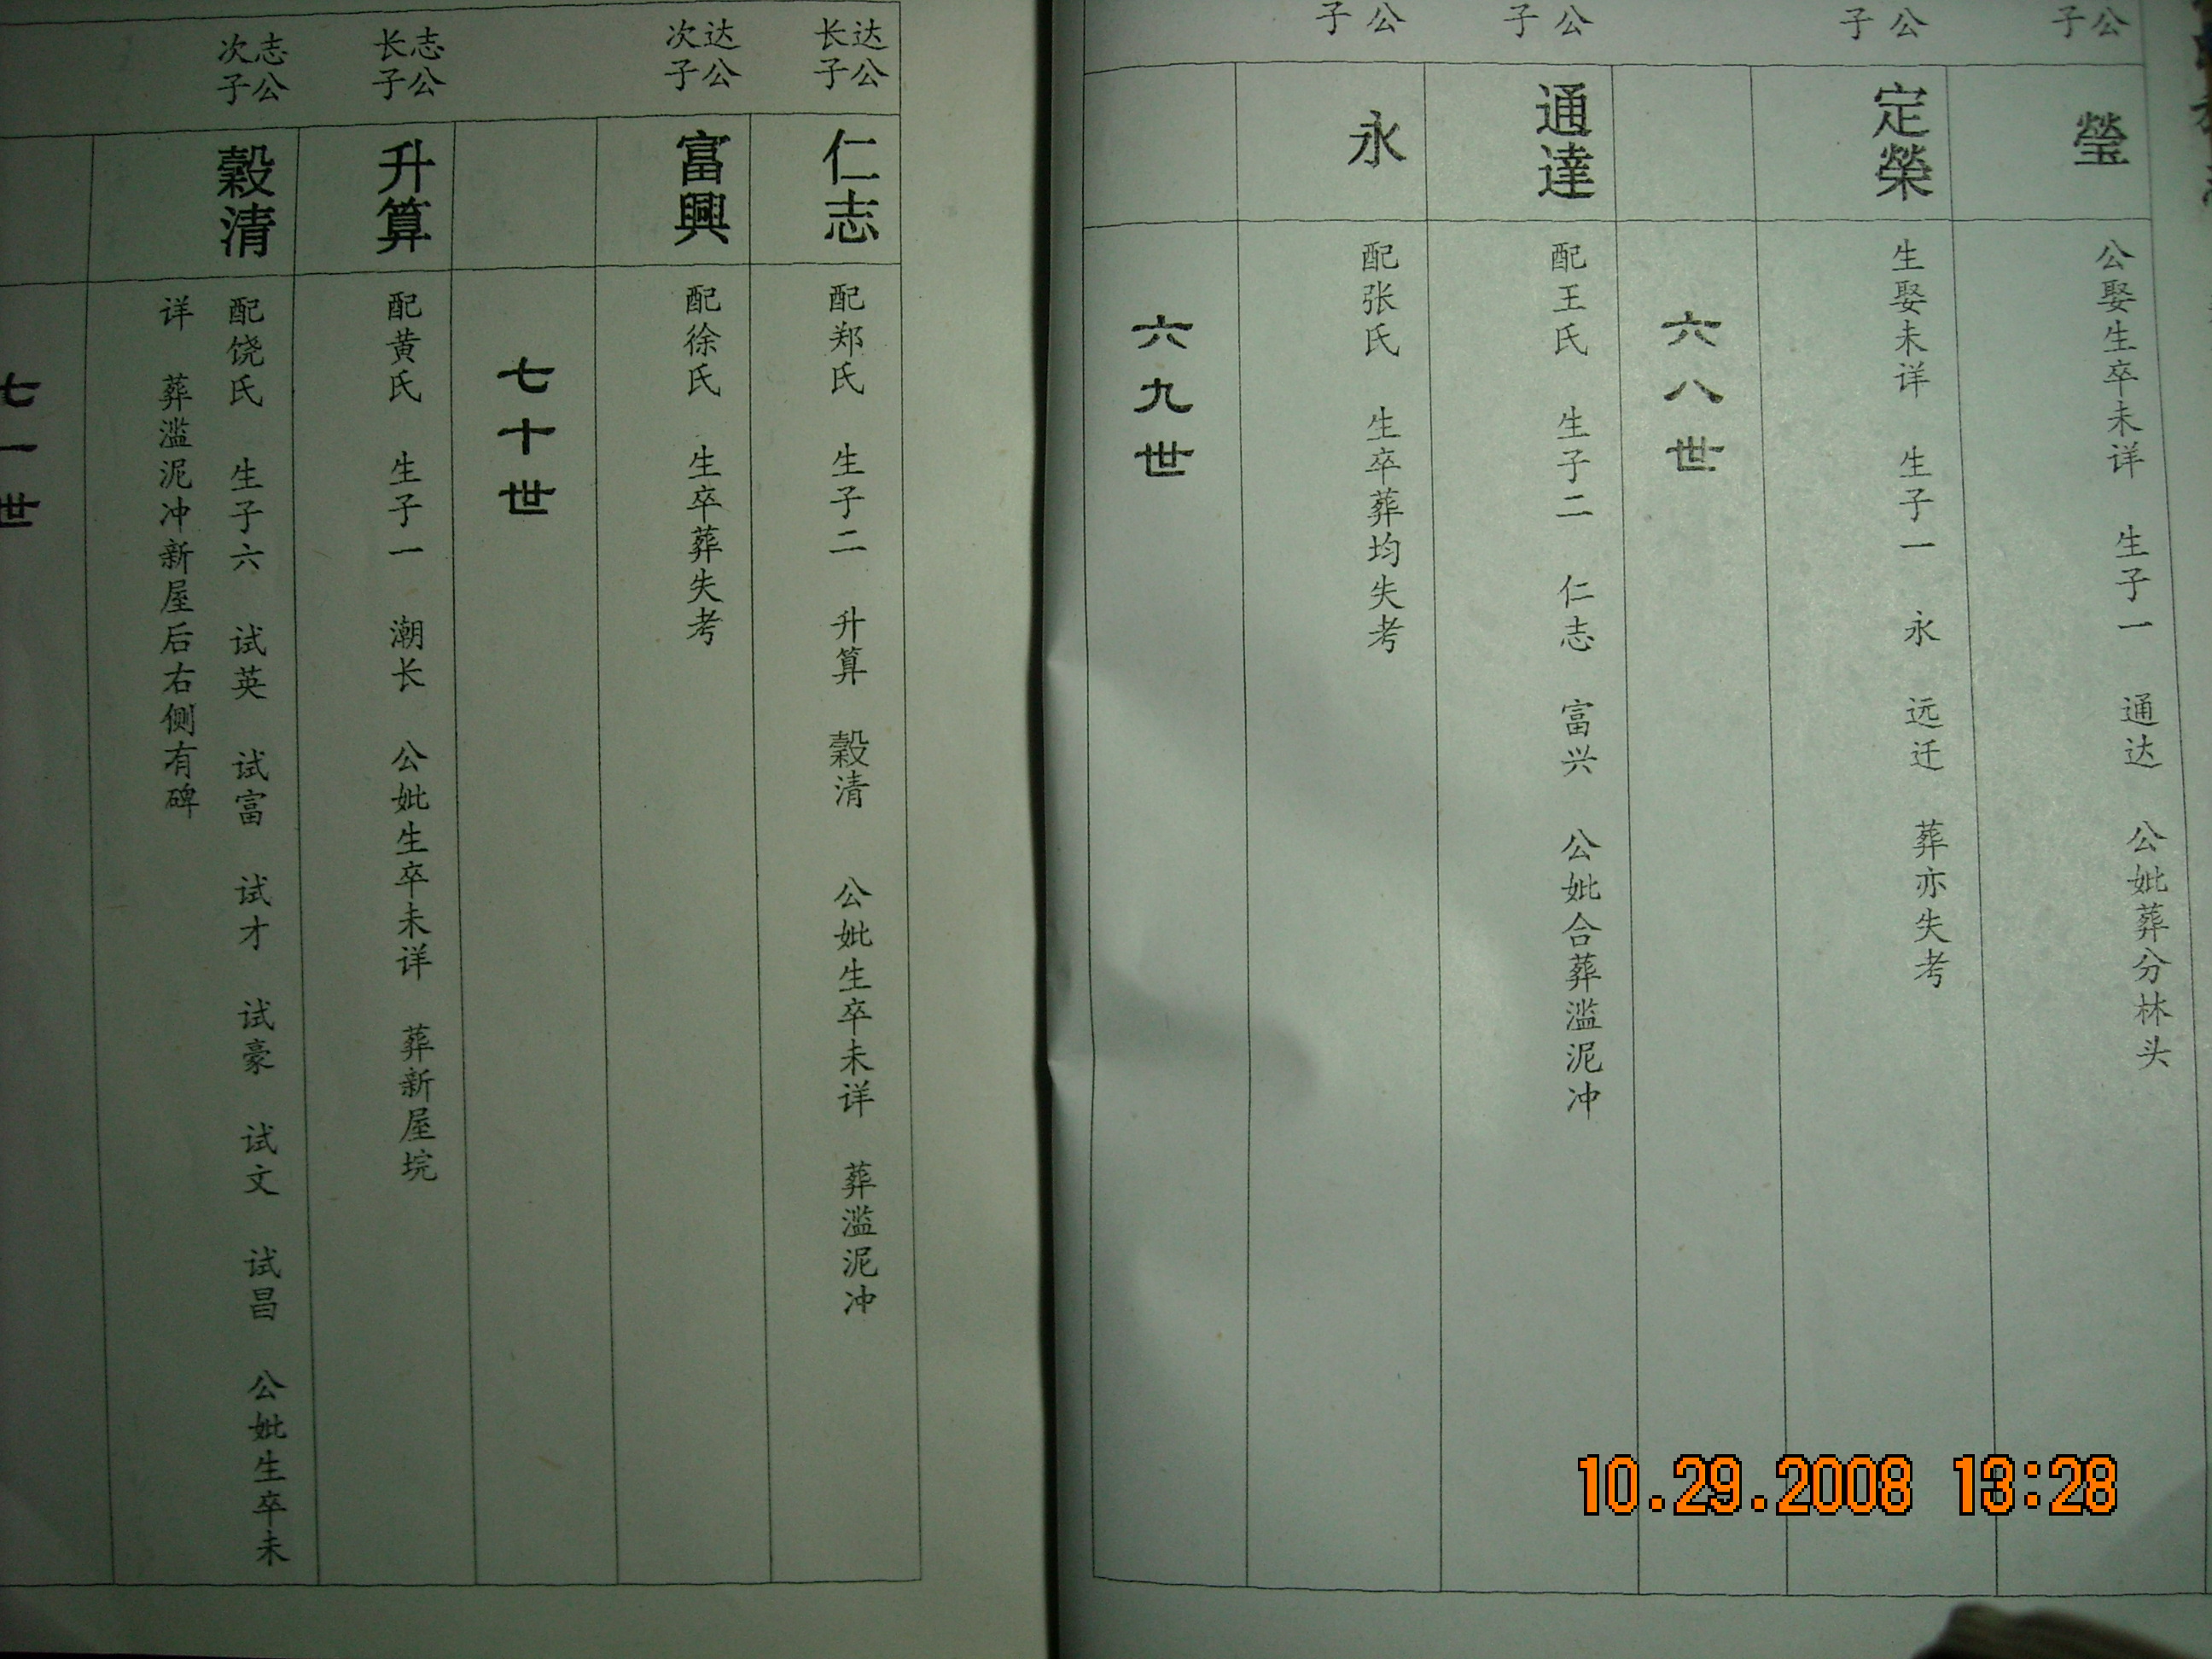 子公
瑩
公娶生卒未详 生子一 通达 公妣葬分林头
子公
定榮
生娶未详 生子一 永 远迁 葬亦失考
六八世
子公
通達
配王氏 生子二 仁志 富兴 公妣合葬滥泥冲
子公
永
配张氏 生卒葬均失考
六九世
达公
长子
仁志
配郑氏 生子二 升算 榖清 公妣生卒未详 葬滥泥冲
达公
次子
富興
配徐氏 生卒葬失考
七十世
志公
长子
升算
配黄氏 生子一 潮长 公妣生卒未详 葬新屋垸
志公
次子
榖清
配饶氏 生子六 试英 试富 试才 试豪 试文 试昌 公妣生卒未
详 葬滥泥冲新屋后右侧有碑
七一世
10.29.2008 13:28